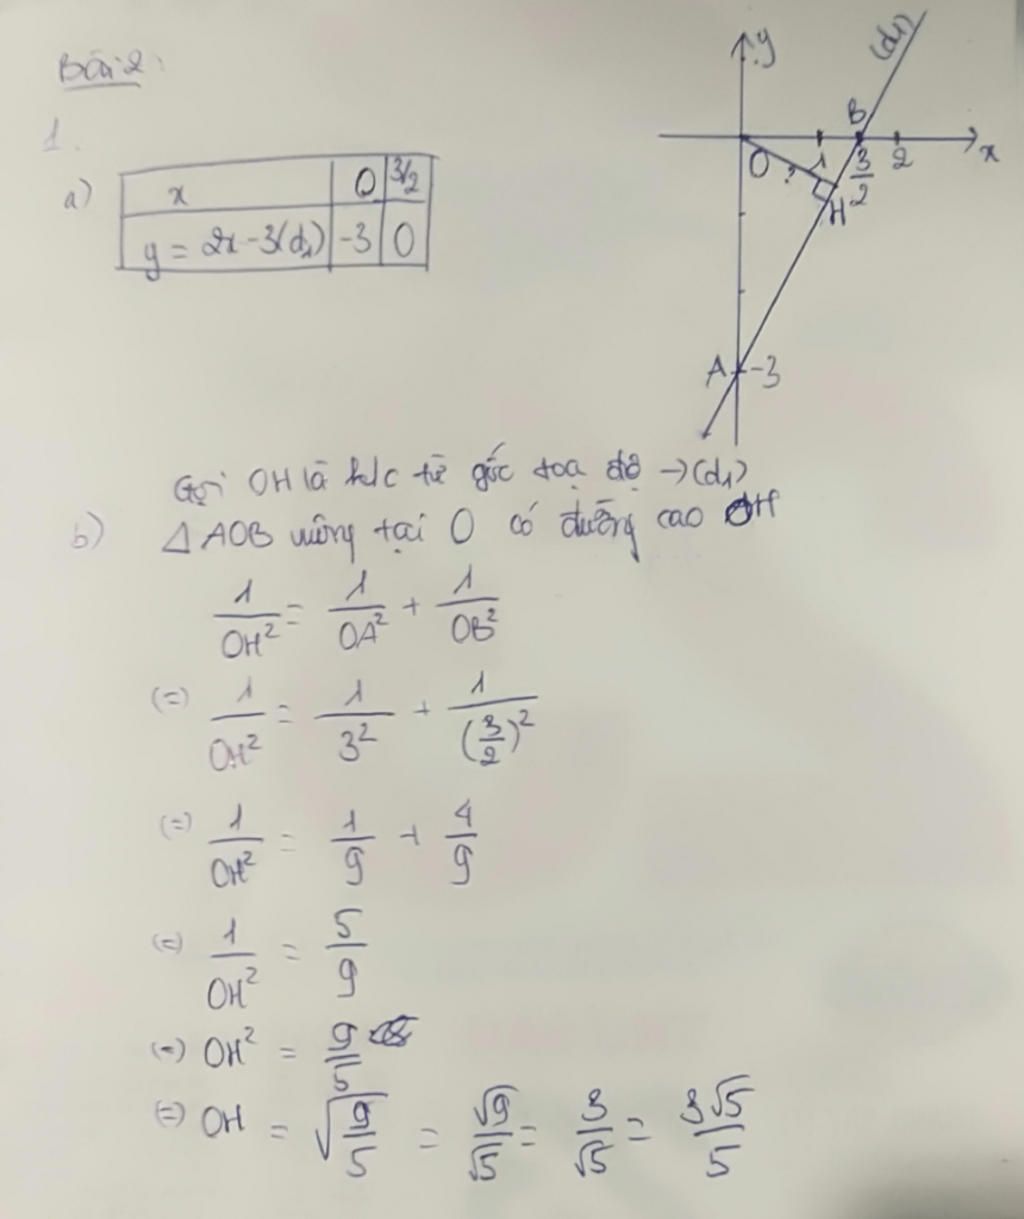 Bài 2:
1.
a)
x | 0 | 3/2
y = 2x - 3 (d₁) | -3 | 0
y
(d₁)
B
x
O ? 1 3/2 2
H
A -3
Gọi OH là k/c từ gốc toạ độ → (d₁)
b) Δ AOB vuông tại O có đường cao OH
1/OH² = 1/OA² + 1/OB²
(=) 1/OH² = 1/3² + 1/(3/2)²
(=) 1/OH² = 1/9 + 4/9
(=) 1/OH² = 5/9
(=) OH² = 9/5
(=) OH = √(9/5) = √9/√5 = 3/√5 = 3√5/5